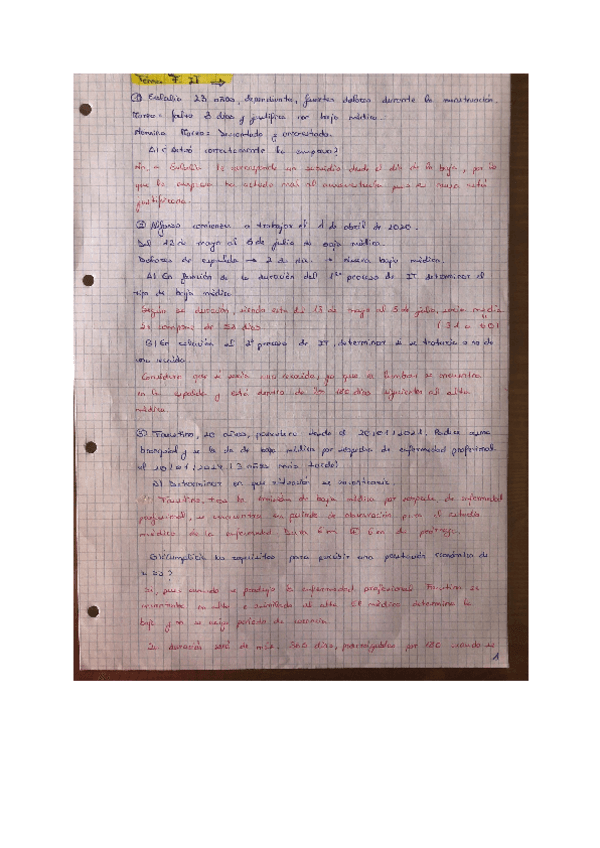 Tema 7. IT →
① Eulalia 23 años, dependienta, fuertes dolores durante la menstruación.
Marzo = falta 3 días y justifica con baja médica.
Nómina Marzo = Descontado y amonestada.
A) ¿Actuó correctamente la empresa?
A Eulalia le corresponde un subsidio desde el día de la baja, por lo
que la empresa ha actuado mal al amonestarla pues la nueva está
justificada.
② Alfonso comienza a trabajar el 1 de abril de 2020.
Del 13 de mayo al 5 de julio de baja médica.
Dolores de espalda → 2 de dic. → nueva baja médica.
A) En función de la duración del 1er proceso de IT, determinar el
tipo de baja médica
Según su duración, siendo esta del 13 de mayo al 5 de julio, sería media
Se compone de días (31 a 60)
B) En relación al 2º proceso de IT, determinar si se trataría o no de
una recaída.
Considero que sí sería una recaída, ya que la lumbar se encuentra
en la espalda y está dentro de los 180 días siguientes al alta
médica.
③ Faustino, 20 años, panadero desde el 20/01/2021. Padece asma
bronquial y se le da de baja médica por sospecha de enfermedad profesional
el 20/01/2024 (3 años más tarde)
A) Determinar en qué situación se encontraría.
Faustino, tras la emisión de baja médica por sospecha de enfermedad
profesional, se encuentra en periodo de observación para el estudio
médico de la enfermedad. Dura 6m + 6m de prórroga.
B) ¿Cumpliría los requisitos para percibir una prestación económica de
la SS?
Sí, pues cuando se produjo la enfermedad profesional Faustino se
encontraba en alta o asimilada al alta. El médico determina la
baja y no se exige periodo de carencia
La duración será de máx. 365 días, prorrogables por 180 cuando se
1